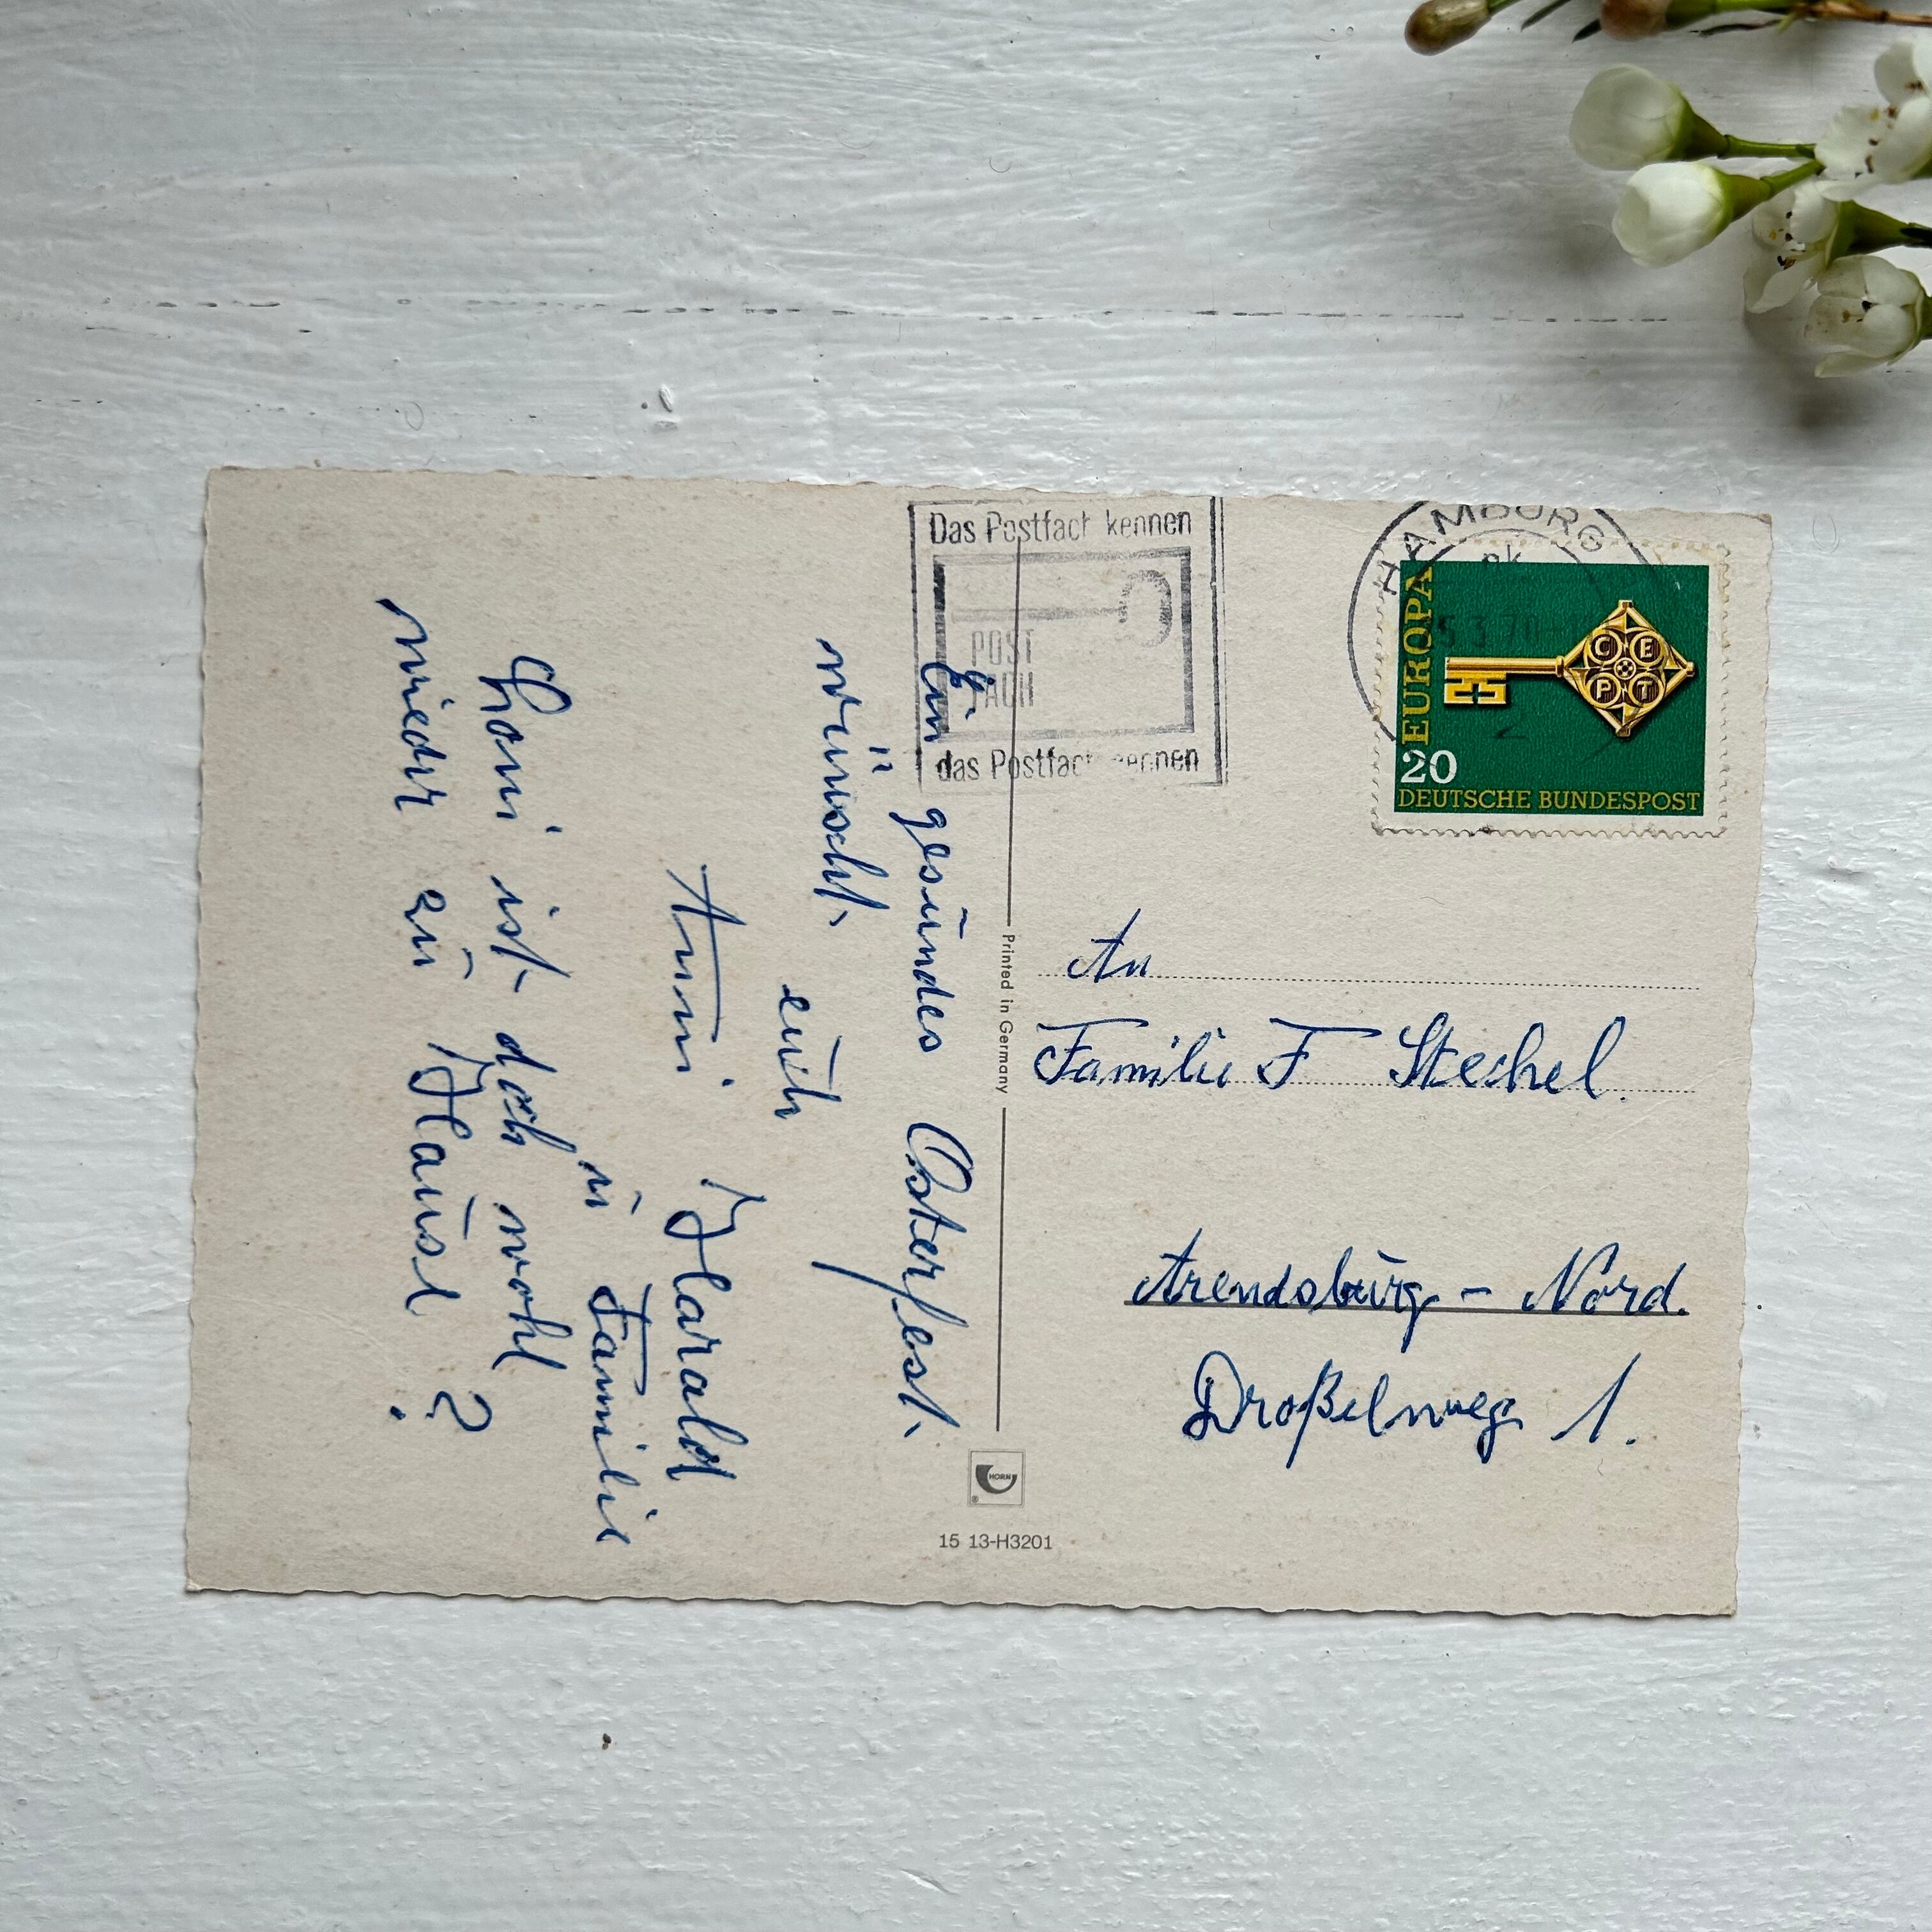 Das Postfach kennen
POST
FACH
das Postfach nennen
HAMBURG
EUROPA
C E
P T
20
DEUTSCHE BUNDESPOST
Ein gesundes Osterfest.
wünscht
euch
Anni Harald
u Familie
Loni ist doch wohl
wieder zu Hause?
Printed in Germany
An
Familie F Stechel.
Arendsburg - Nord.
Droßelweg 1.
HORN
®
15 13-H3201